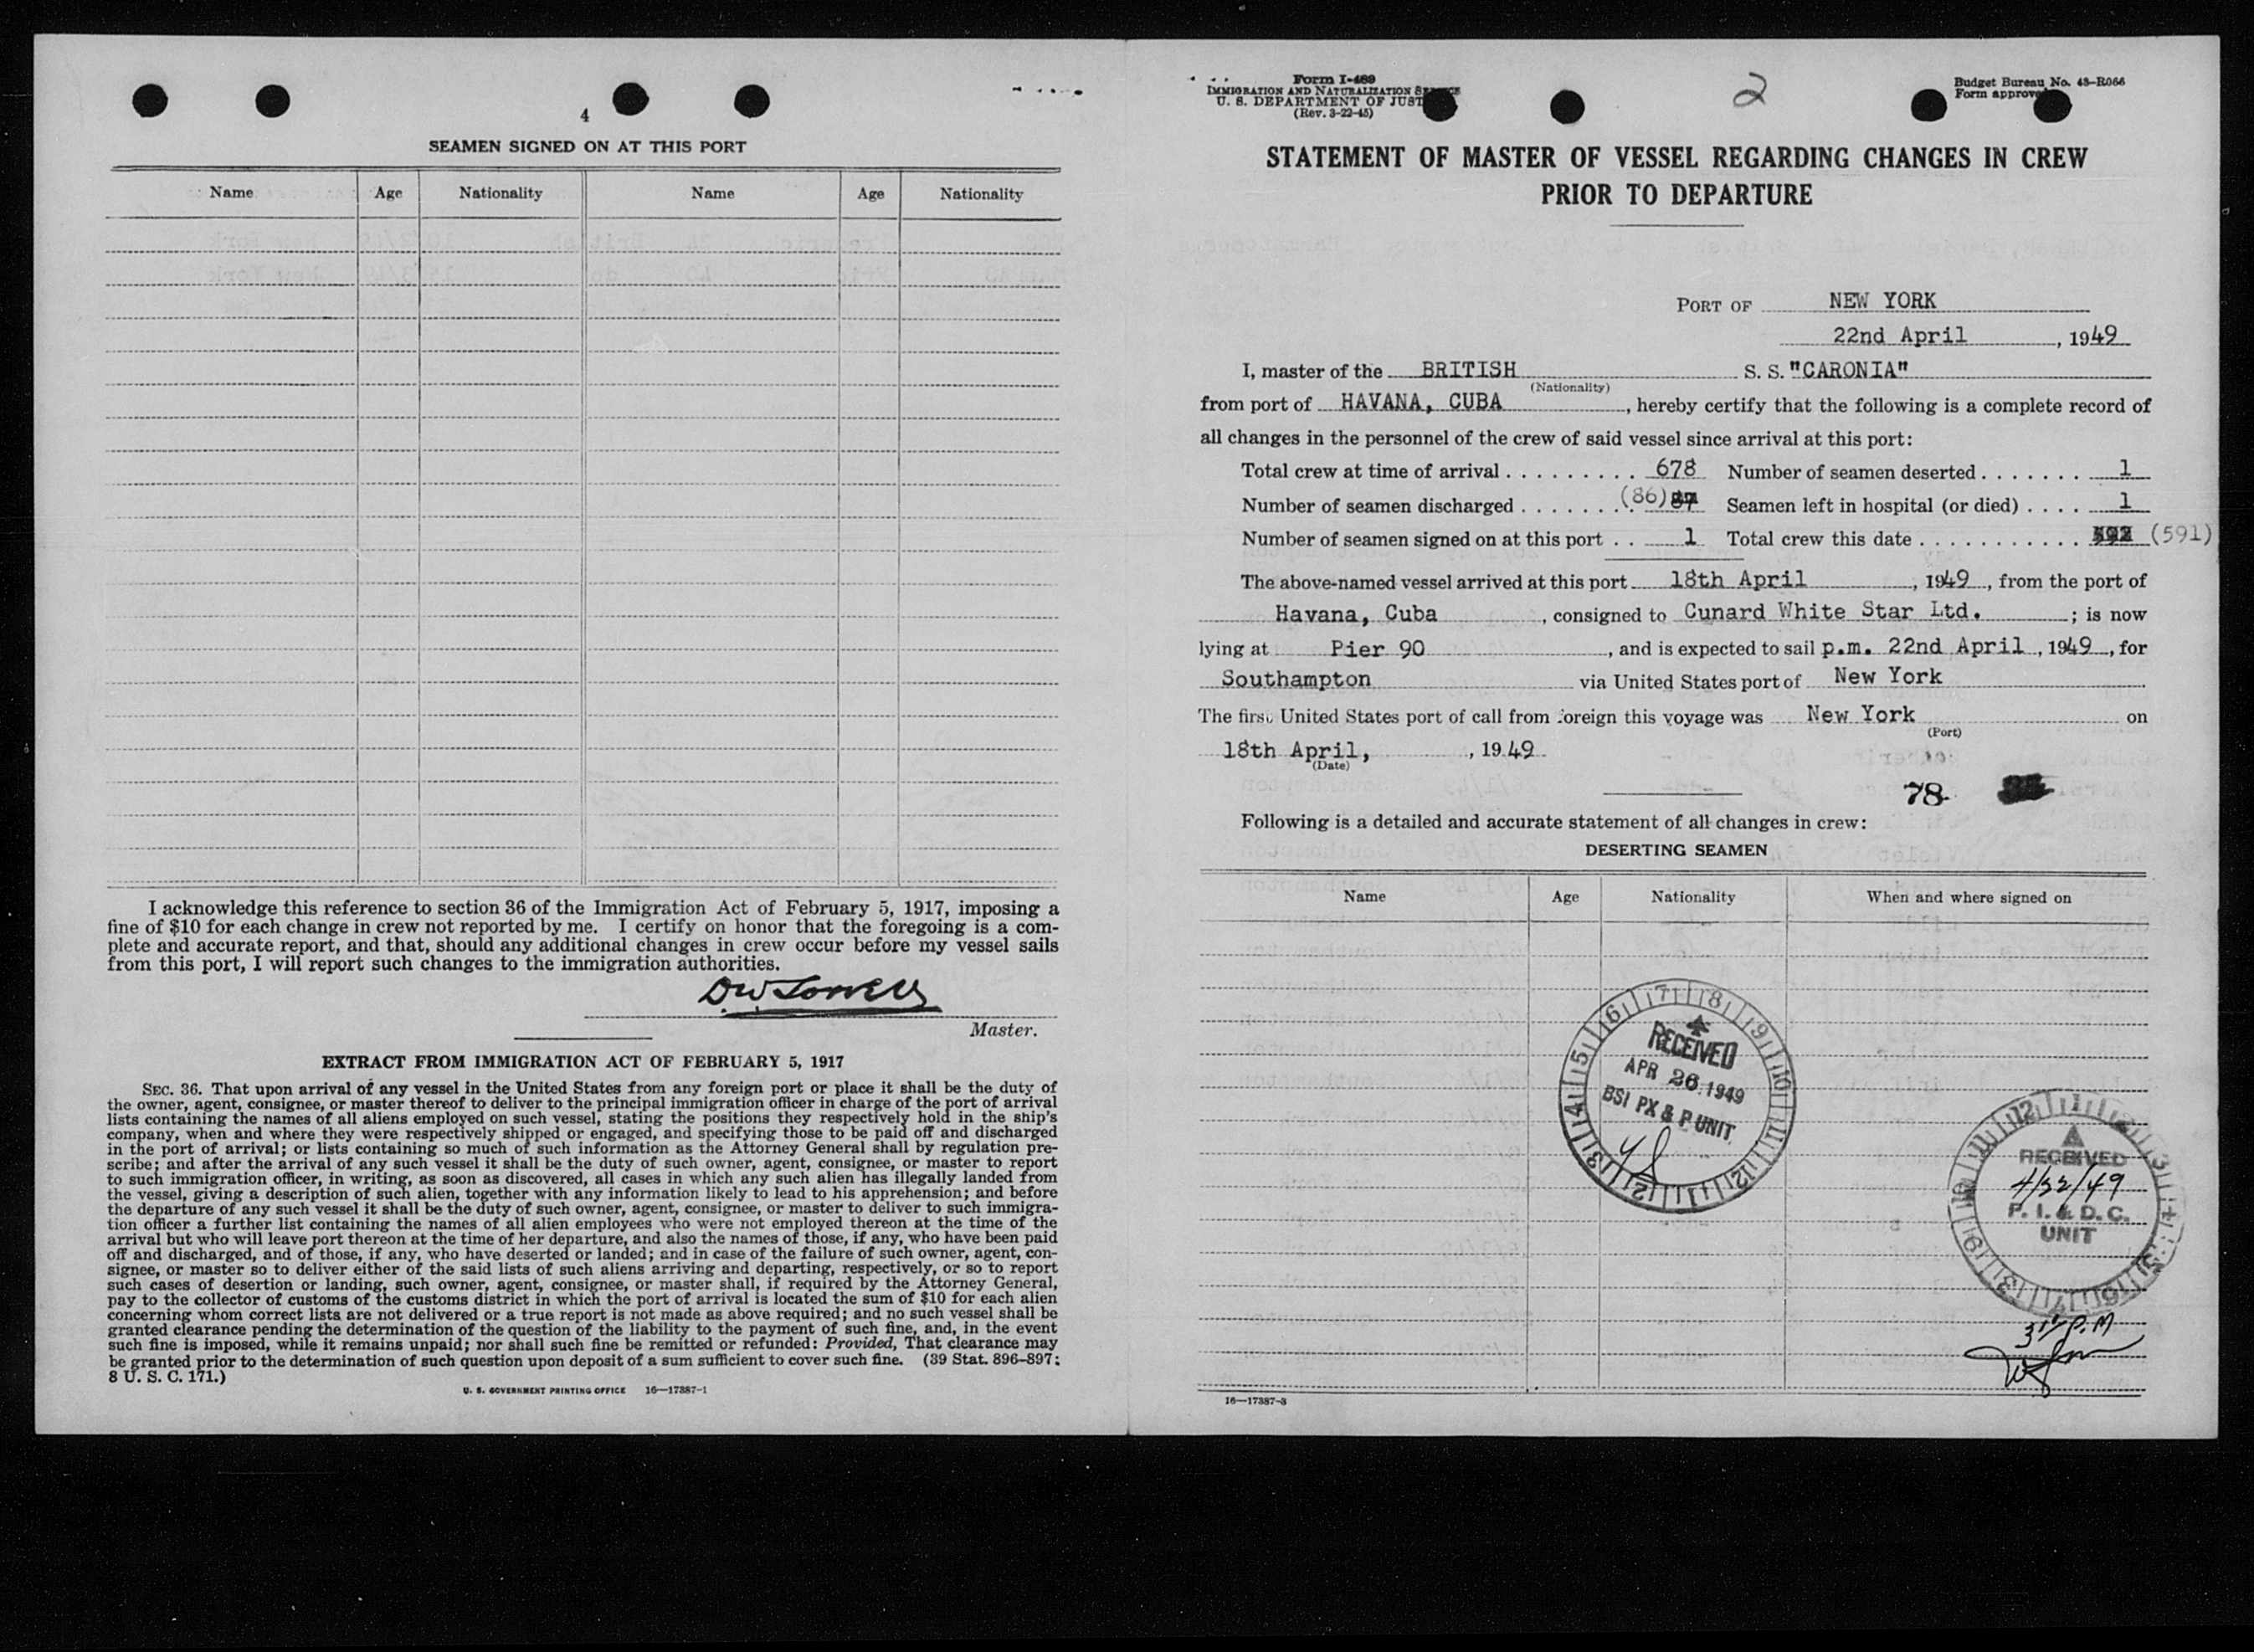 4
SEAMEN SIGNED ON AT THIS PORT
Name Age Nationality Name Age Nationality
I acknowledge this reference to section 36 of the Immigration Act of February 5, 1917, imposing a
fine of $10 for each change in crew not reported by me. I certify on honor that the foregoing is a com-
plete and accurate report, and that, should any additional changes in crew occur before my vessel sails
from this port, I will report such changes to the immigration authorities.
Master.
EXTRACT FROM IMMIGRATION ACT OF FEBRUARY 5, 1917
SEC. 36. That upon arrival of any vessel in the United States from any foreign port or place it shall be the duty of
the owner, agent, consignee, or master thereof to deliver to the principal immigration officer in charge of the port of arrival
lists containing the names of all aliens employed on such vessel, stating the positions they respectively hold in the ship's
company, when and where they were respectively shipped or engaged, and specifying those to be paid off and discharged
in the port of arrival; or lists containing so much of such information as the Attorney General shall by regulation pre-
scribe; and after the arrival of any such vessel it shall be the duty of such owner, agent, consignee, or master to report
to such immigration officer, in writing, as soon as discovered, all cases in which any such alien has illegally landed from
the vessel, giving a description of such alien, together with any information likely to lead to his apprehension; and before
the departure of any such vessel it shall be the duty of such owner, agent, consignee, or master to deliver to such immigra-
tion officer a further list containing the names of all alien employees who were not employed thereon at the time of the
arrival but who will leave port thereon at the time of her departure, and also the names of those, if any, who have been paid
off and discharged, and of those, if any, who have deserted or landed; and in case of the failure of such owner, agent, con-
signee, or master so to deliver either of the said lists of such aliens arriving and departing, respectively, or so to report
such cases of desertion or landing, such owner, agent, consignee, or master shall, if required by the Attorney General,
pay to the collector of customs of the customs district in which the port of arrival is located the sum of $10 for each alien
concerning whom correct lists are not delivered or a true report is not made as above required; and no such vessel shall be
granted clearance pending the determination of the question of the liability to the payment of such fine, and, in the event
such fine is imposed, while it remains unpaid; nor shall such fine be remitted or refunded: Provided, That clearance may
be granted prior to the determination of such question upon deposit of a sum sufficient to cover such fine. (39 Stat. 896-897;
8 U. S. C. 171.)
U. S. GOVERNMENT PRINTING OFFICE 16—17387-1
Form I-489
IMMIGRATION AND NATURALIZATION
U. S. DEPARTMENT OF JUST
(Rev. 3-22-45)
2
Budget Bureau No. 43-R066
Form approve
STATEMENT OF MASTER OF VESSEL REGARDING CHANGES IN CREW
PRIOR TO DEPARTURE
PORT OF NEW YORK
22nd April, 1949
I, master of the BRITISH S. S. "CARONIA"
(Nationality)
from port of HAVANA, CUBA, hereby certify that the following is a complete record of
all changes in the personnel of the crew of said vessel since arrival at this port:
Total crew at time of arrival . . . . . . . . . 678 Number of seamen deserted . . . . . . . 1
Number of seamen discharged . . . . . . . (86) Seamen left in hospital (or died) . . . . 1
Number of seamen signed on at this port . . 1 Total crew this date . . . . . . . . . . . (591)
The above-named vessel arrived at this port 18th April, 1949, from the port of
Havana, Cuba, consigned to Cunard White Star Ltd. ; is now
lying at Pier 90, and is expected to sail p.m. 22nd April, 1949, for
Southampton via United States port of New York
The first United States port of call from foreign this voyage was New York on
(Port)
18th April, , 1949
(Date)
78
Following is a detailed and accurate statement of all changes in crew:
DESERTING SEAMEN
Name Age Nationality When and where signed on
RECEIVED
APR 26 1949
BSI PX & P UNIT
RECEIVED
4/22/49
P. I. & D. C.
UNIT
16—17387-3